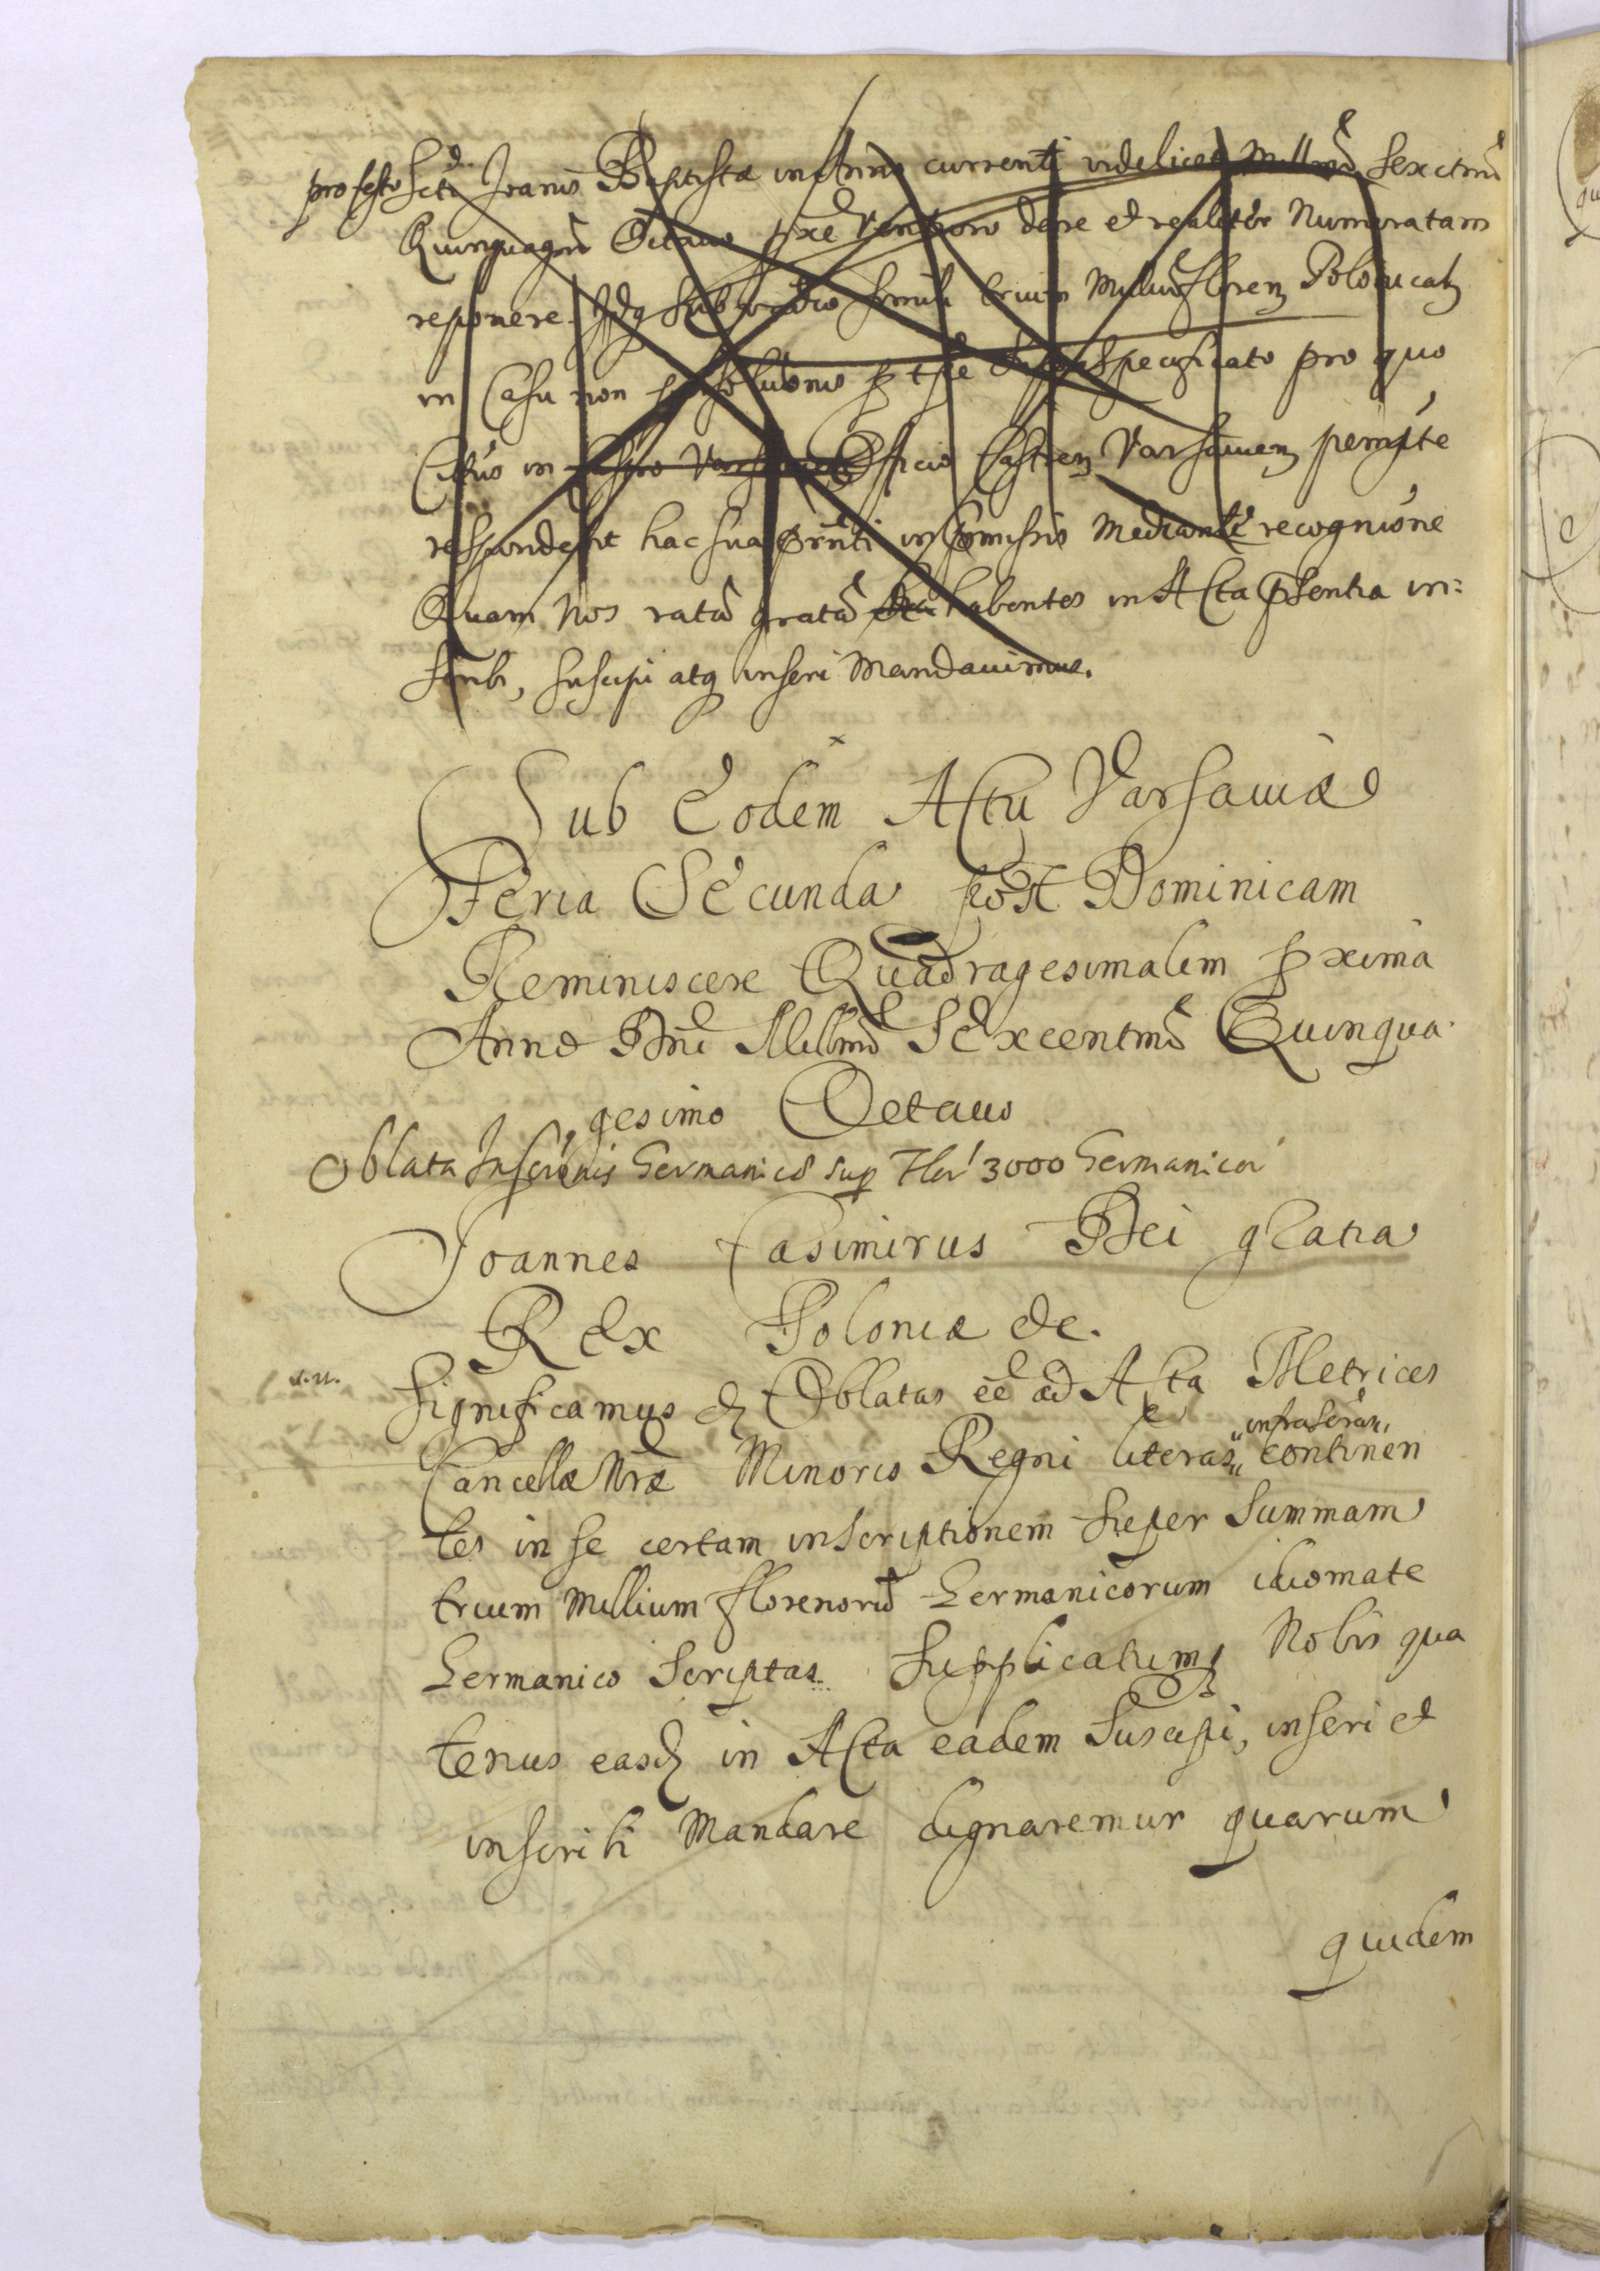 pro festo Scti Joanis Baptistæ in Anno currenti videlicet Millmo Sexctmo
Quinquagmo Octavo pxe Venturo dare et realiter Numeratam
reponere Idq sub vadio simili trium Milliu floren Polonical
in Casu non psolutionis p tpe supra specificato pro quo
Citus in Officio Castren Varsavien perempte
respondebit hac sua pnti inscriptionis Mediante recognione
Quam Nos ratam gratam habentes in Acta psentia in=
scribi, suscipi atq inseri Mandavimus.
Sub Eodem Actu Varsaviæ
Feria Secunda post Dominicam
Reminiscere Quadragesimalem pxima
Anno Dni Millmo Sexcentmo Quinqua
gesimo Octavo
Oblata Inscrionis Germanico sup Flor 3000 Germanicor
Joannes Casimirus Dei gratia
Rex Poloniæ etc.
Significamus etc Oblatas eē ad Acta Metrices
Cancellæ Nræ Minoris Regni literas infrascrav continen
tes in se certam inscriptionem super Summam
trium Millium florenoru Germanicorum idiomate
Germanico scriptas. Supplicatumq Nobis qua
tenus easd in Acta eadem Suscipi, inseri et
inscribi Mandare dignaremur quarum
quidem